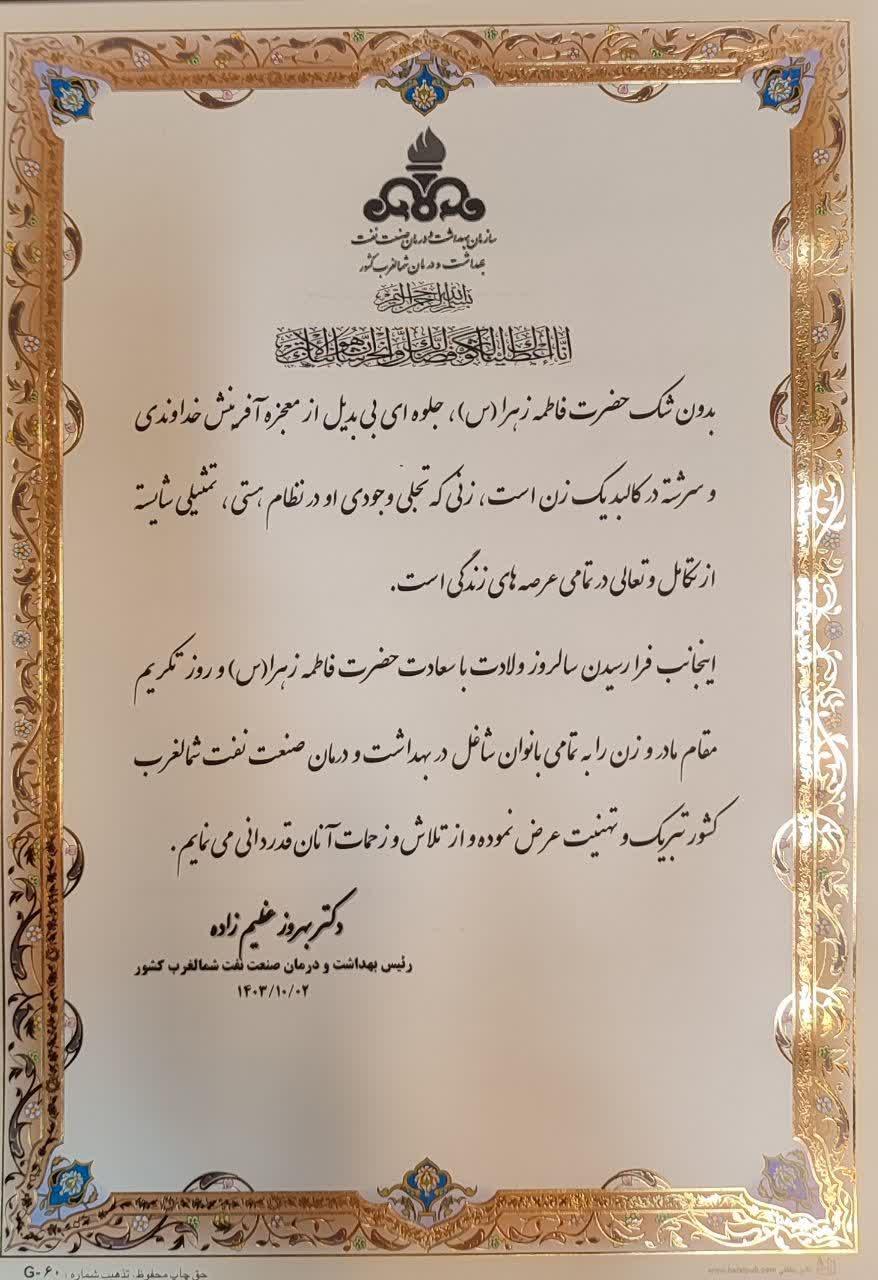 سازمان بهداشت و درمان صنعت نفت
بهداشت و درمان شمالغرب کشور
بسم الله الرحمن الرحیم
إنا أعطیناك الكوثر فصل لربك وانحر إن شانئك هو الأبتر
بدون شک حضرت فاطمه زهرا (س)، جلوه ای بی بدیل از معجزه آفرینش خداوندی
و سرشته در کالبد یک زن است، زنی که تجلی وجودی او در نظام هستی، تمثیلی شایسته
از تکامل و تعالی در تمامی عرصه های زندگی است.
اینجانب فرا رسیدن سالروز ولادت با سعادت حضرت فاطمه زهرا(س) و روز تکریم
مقام مادر و زن را به تمامی بانوان شاغل در بهداشت و درمان صنعت نفت شمالغرب
کشور تبریک و تهنیت عرض نموده و از تلاش و زحمات آنان قدردانی می نمایم.
دکتر بهروز عظیم زاده
رئیس بهداشت و درمان صنعت نفت شمالغرب کشور
۱۴۰۳/۱۰/۰۲
حق چاپ محفوظ، تذهیب شماره: G-۶۰